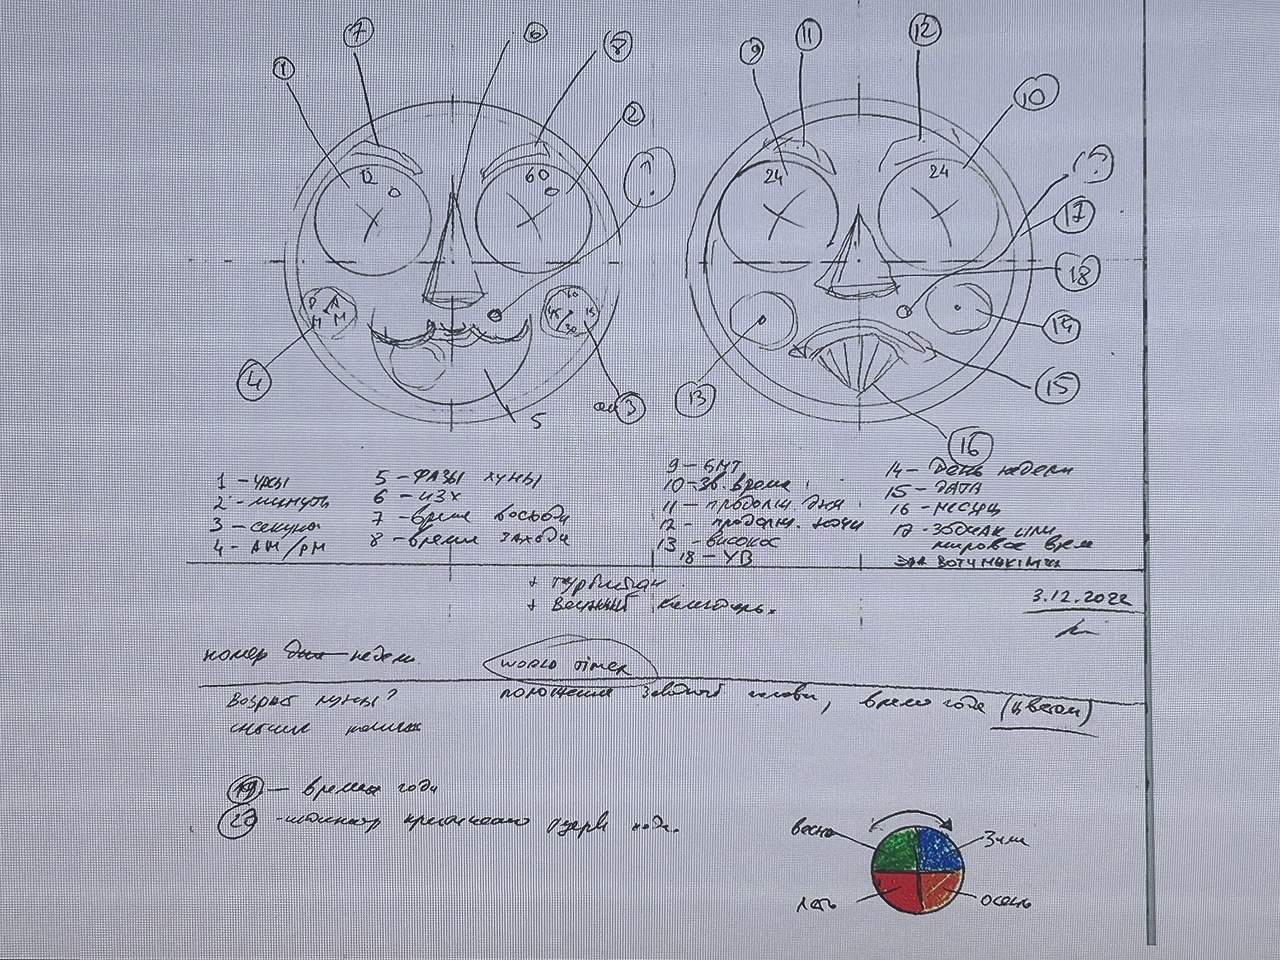 7
6
8
11
12
1
2
9
10
12
60
24
24
17
18
P A
M M
60
45 15
30
14
4
3
13
15
5
16
1 – часы
2 – минуты
3 – секунды
4 – AM/PM
5 – фазы луны
6 –
7 – время восхода
8 – время захода
9 – GMT
10 – Зв. время
11 – продолж. дня
12 – продолж. ночи
13 – високос
18 – УВ
14 – День недели
15 – дата
16 – месяц
17 – Зодиак или
мировое врем
+ турбийон
+ Вечный календарь.
3.12.2022
номер недели
WORLD TIMER
Возраст луны?
положение заводной головки, время года (цветом)
19 – время года
20 – индикатор
весна
зима
лето
осень